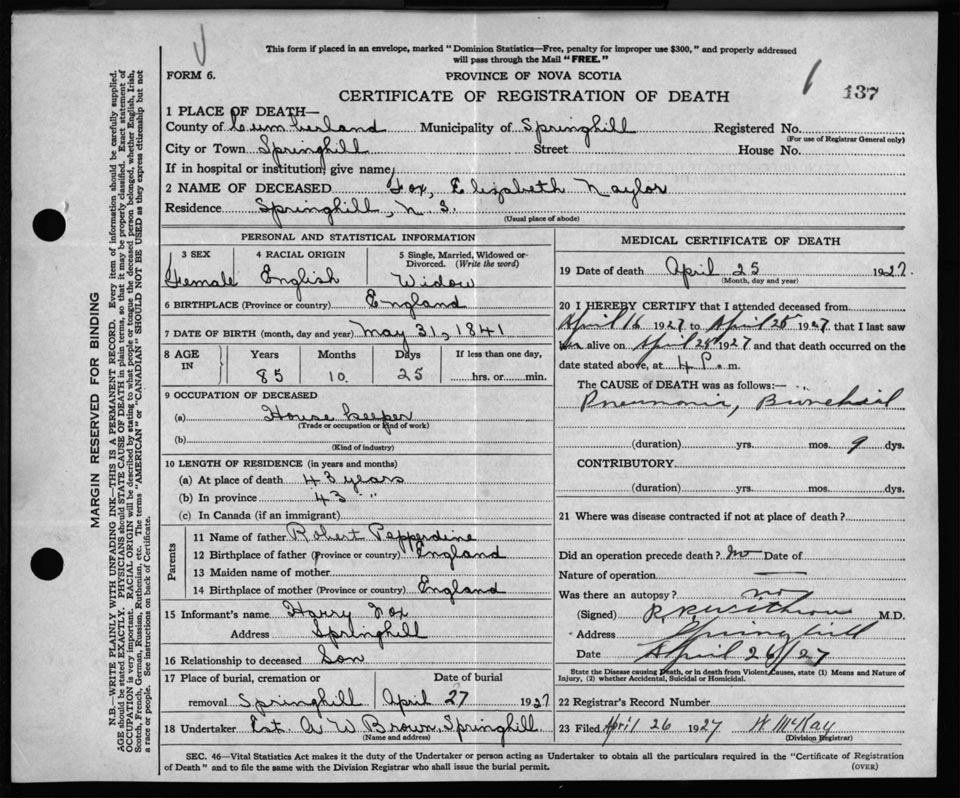 This form if placed in an envelope, marked "Dominion Statistics—Free, penalty for improper use $300," and properly addressed
will pass through the Mail "FREE."
FORM 6. PROVINCE OF NOVA SCOTIA
137
CERTIFICATE OF REGISTRATION OF DEATH
1 PLACE OF DEATH—
County of Cumberland Municipality of Springhill Registered No.
(For use of Registrar General only)
City or Town Springhill Street House No.
If in hospital or institution, give name
2 NAME OF DECEASED Fox, Elizabeth Naylor
Residence Springhill, N. S.
(Usual place of abode)
PERSONAL AND STATISTICAL INFORMATION
3 SEX 4 RACIAL ORIGIN 5 Single, Married, Widowed or
Divorced. (Write the word)
Female English Widow
6 BIRTHPLACE (Province or country) England
7 DATE OF BIRTH (month, day and year) May 31, 1841
8 AGE IN Years Months Days If less than one day,
85 10 25 hrs. or min.
9 OCCUPATION OF DECEASED
(a) House keeper
(Trade or occupation or kind of work)
(b)
(Kind of industry)
10 LENGTH OF RESIDENCE (in years and months)
(a) At place of death 43 years
(b) In province 43 "
(c) In Canada (if an immigrant)
Parents
11 Name of father Robert Pepperdine
12 Birthplace of father (Province or country) England
13 Maiden name of mother
14 Birthplace of mother (Province or country) England
15 Informant's name Harry Fox
Address Springhill
16 Relationship to deceased Son
17 Place of burial, cremation or Date of burial
removal Springhill April 27 1927
18 Undertaker Est. A W Brown, Springhill
(Name and address)
MEDICAL CERTIFICATE OF DEATH
19 Date of death April 25 1927.
(Month, day and year)
20 I HEREBY CERTIFY that I attended deceased from
April 16 1927 to April 25 1927 that I last saw
alive on April 25 1927 and that death occurred on the
date stated above, at 4 P. m.
The CAUSE OF DEATH was as follows:—
Pneumonia, Bronchial
(duration) yrs. mos. 9 dys.
CONTRIBUTORY
(duration) yrs. mos. dys.
21 Where was disease contracted if not at place of death?
Did an operation precede death? no Date of
Nature of operation —
Was there an autopsy? no
(Signed) M.D.
Address Springhill
Date April 26/27
State the Disease causing Death, or in death from Violent Causes, state (1) Means and Nature of
Injury, (2) whether Accidental, Suicidal or Homicidal.
22 Registrar's Record Number
23 Filed April 26 1927 W McKay
(Division Registrar)
SEC. 46—Vital Statistics Act makes it the duty of the Undertaker or person acting as Undertaker to obtain all the particulars required in the "Certificate of Registration
of Death" and to file the same with the Division Registrar who shall issue the burial permit. (OVER)
MARGIN RESERVED FOR BINDING
N.B.—WRITE PLAINLY WITH UNFADING INK—THIS IS A PERMANENT RECORD. Every item of information should be carefully supplied.
AGE should be stated EXACTLY. PHYSICIANS should STATE CAUSE OF DEATH in plain terms, so that it may be properly classified. Exact statement of
OCCUPATION is very important. RACIAL ORIGIN will be described by stating to what people or tongue the deceased person belonged, whether English, Irish,
Scotch, French, German, Russian, Ruthenian, etc. The terms "AMERICAN" or "CANADIAN" SHOULD NOT BE USED as they express citizenship but not
a race or people. See instructions on back of Certificate.